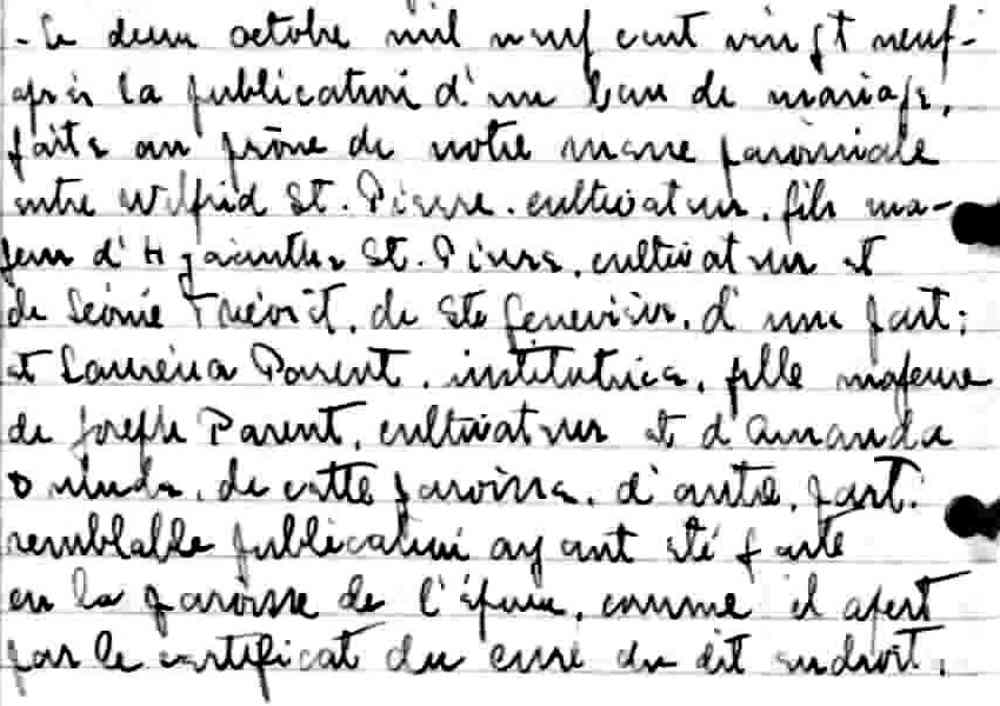 - Le deux octobre mil neuf cent vingt neuf -
après la publication d'un ban de mariage,
faite au prône de notre messe paroissiale
entre Wilfrid St. Pierre, cultivateur, fils ma-
jeur d'Hyacinthe St. Pierre, cultivateur et
de Léonie, de Ste Geneviève, d'une part;
et Lauréna Parent, institutrice, fille majeure
de Joseph Parent, cultivateur et d'Amanda
de cette paroisse, d'autre part.
semblable publication ayant été faite
en la paroisse de l'époux, comme il apert
par le certificat du curé du dit endroit,